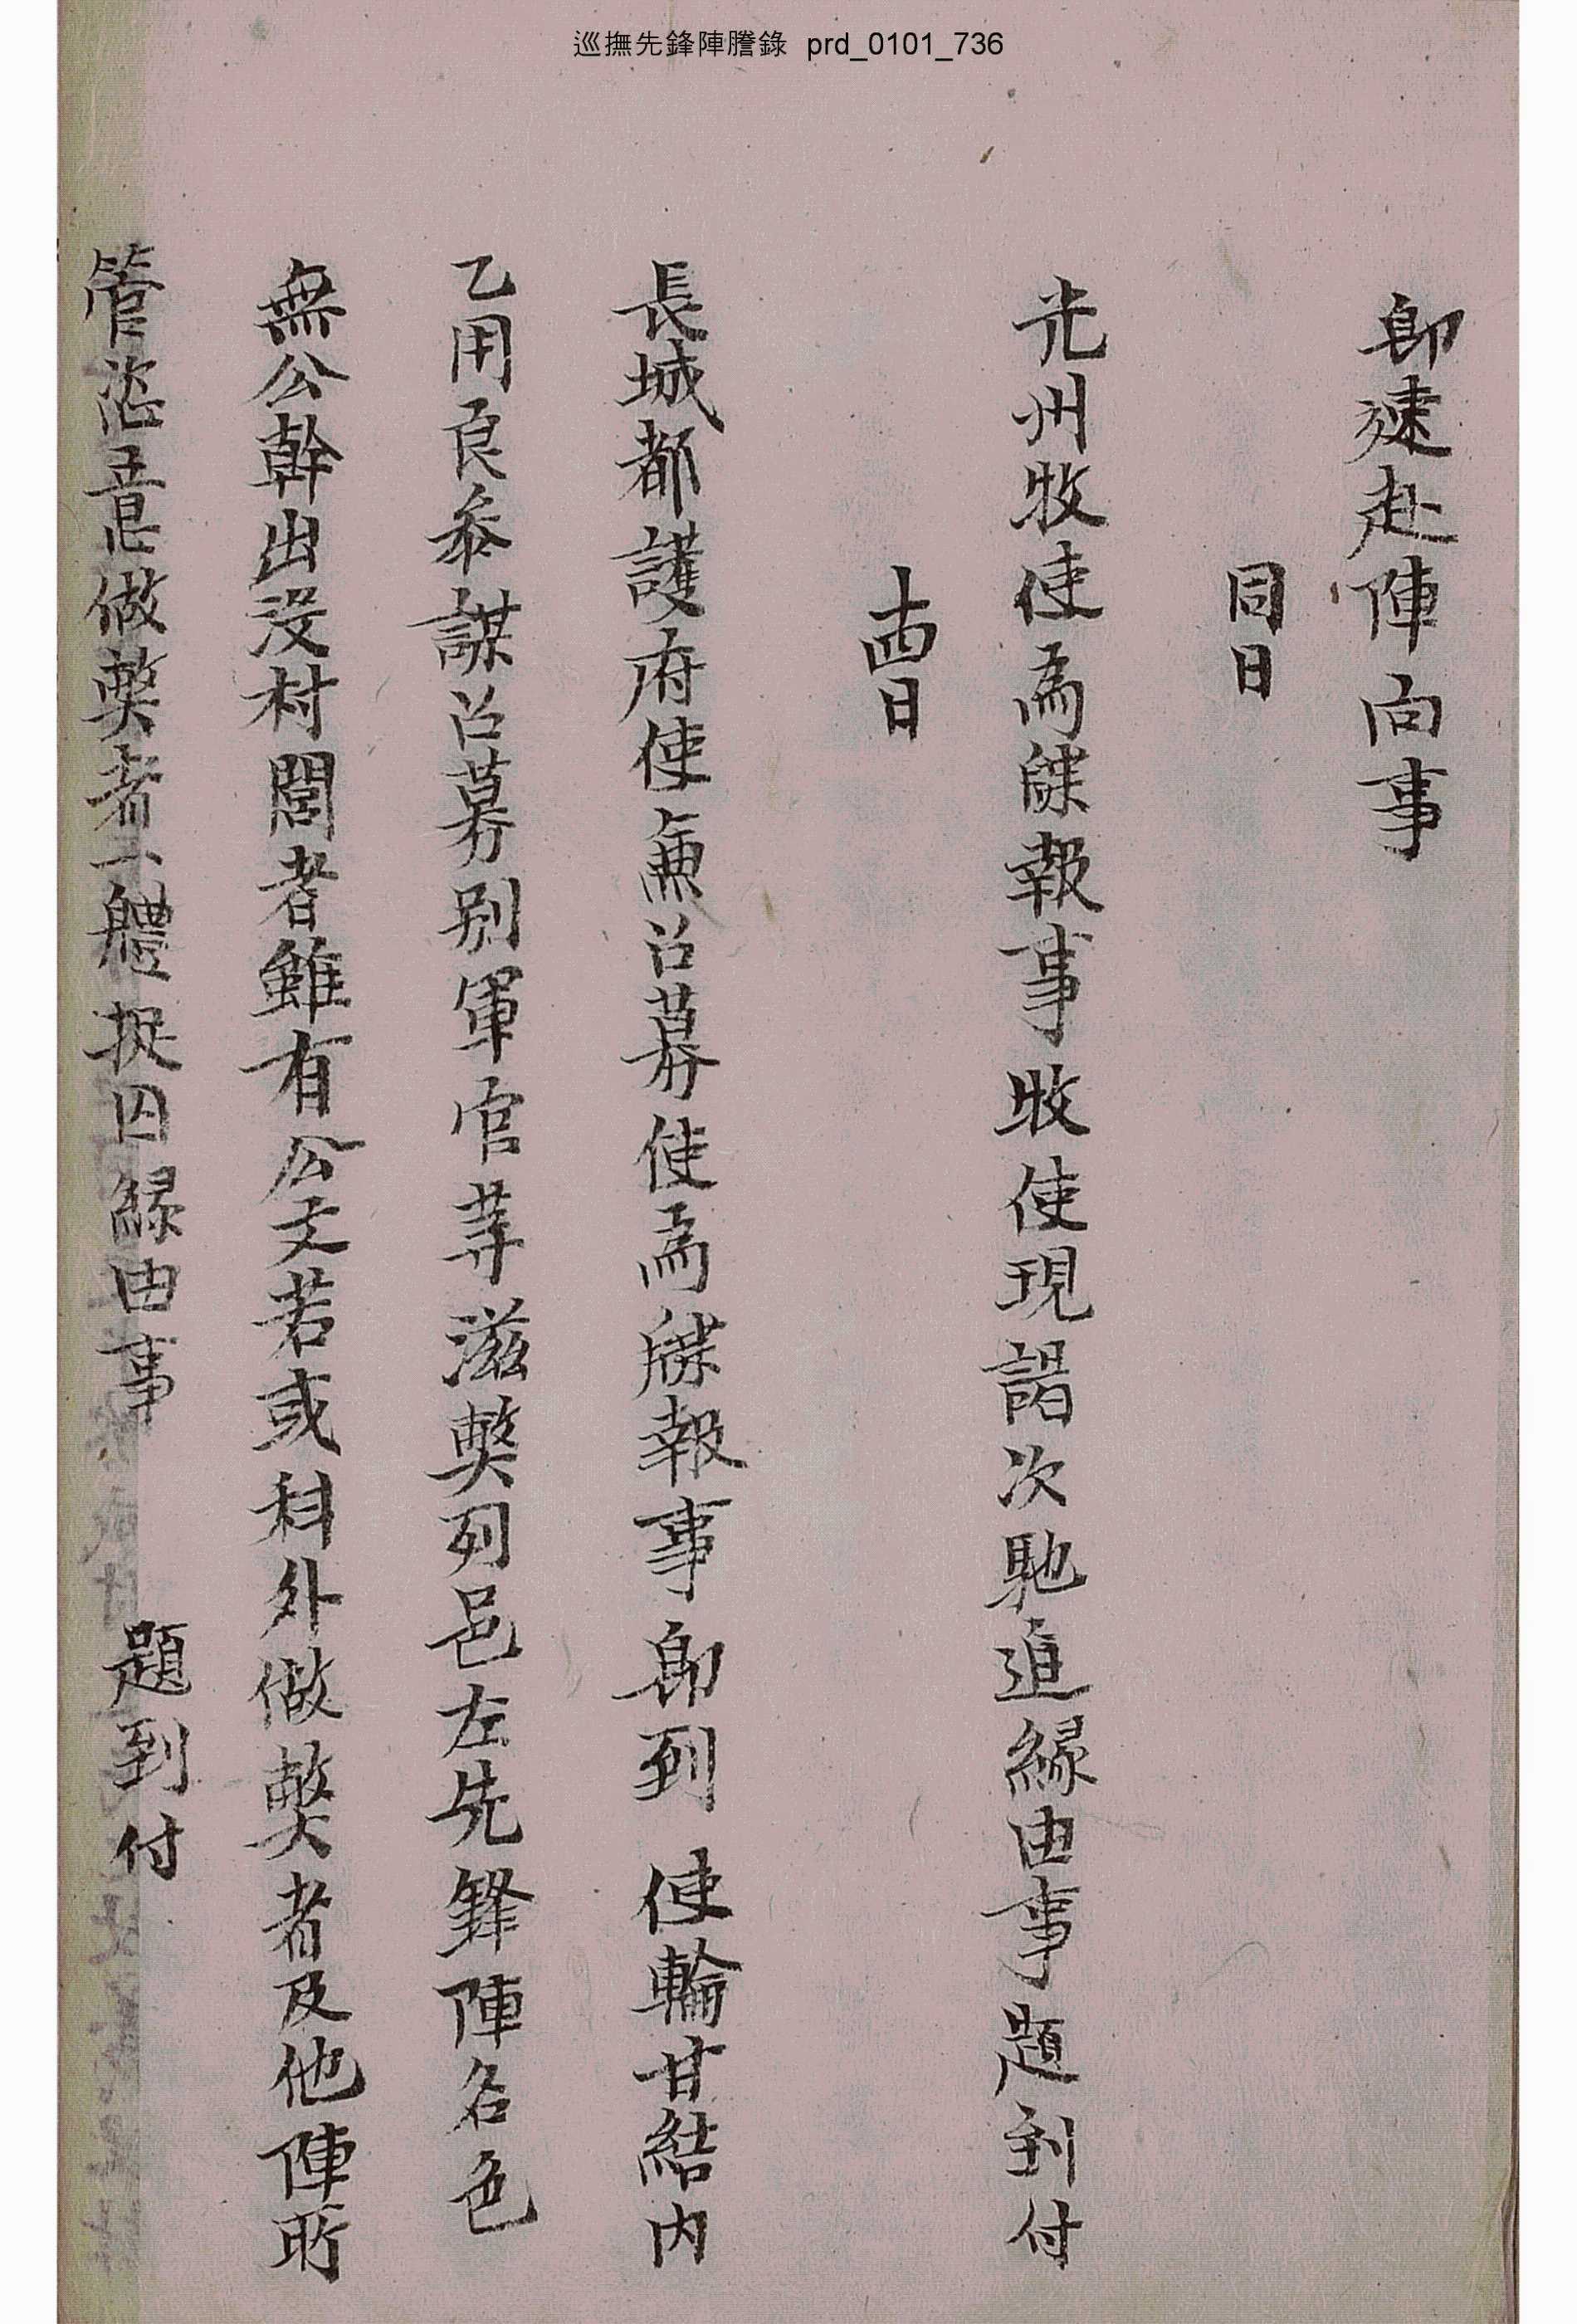 巡撫先鋒陣謄錄 prd_0101_736
卽速赴陣向事
同日
光州牧使爲牒報事牧使現謁次馳進緣由事題到付
十四日
長城都護府使兼召募使爲牒報事卽到 使輪甘結內
乙用良參謀召募別軍官等滋弊列邑左先鋒陣名色
無公幹出沒村閭者雖有公文若或科外做弊者及他陣所
管恣意做弊者一軆捉囚緣由事 題到付